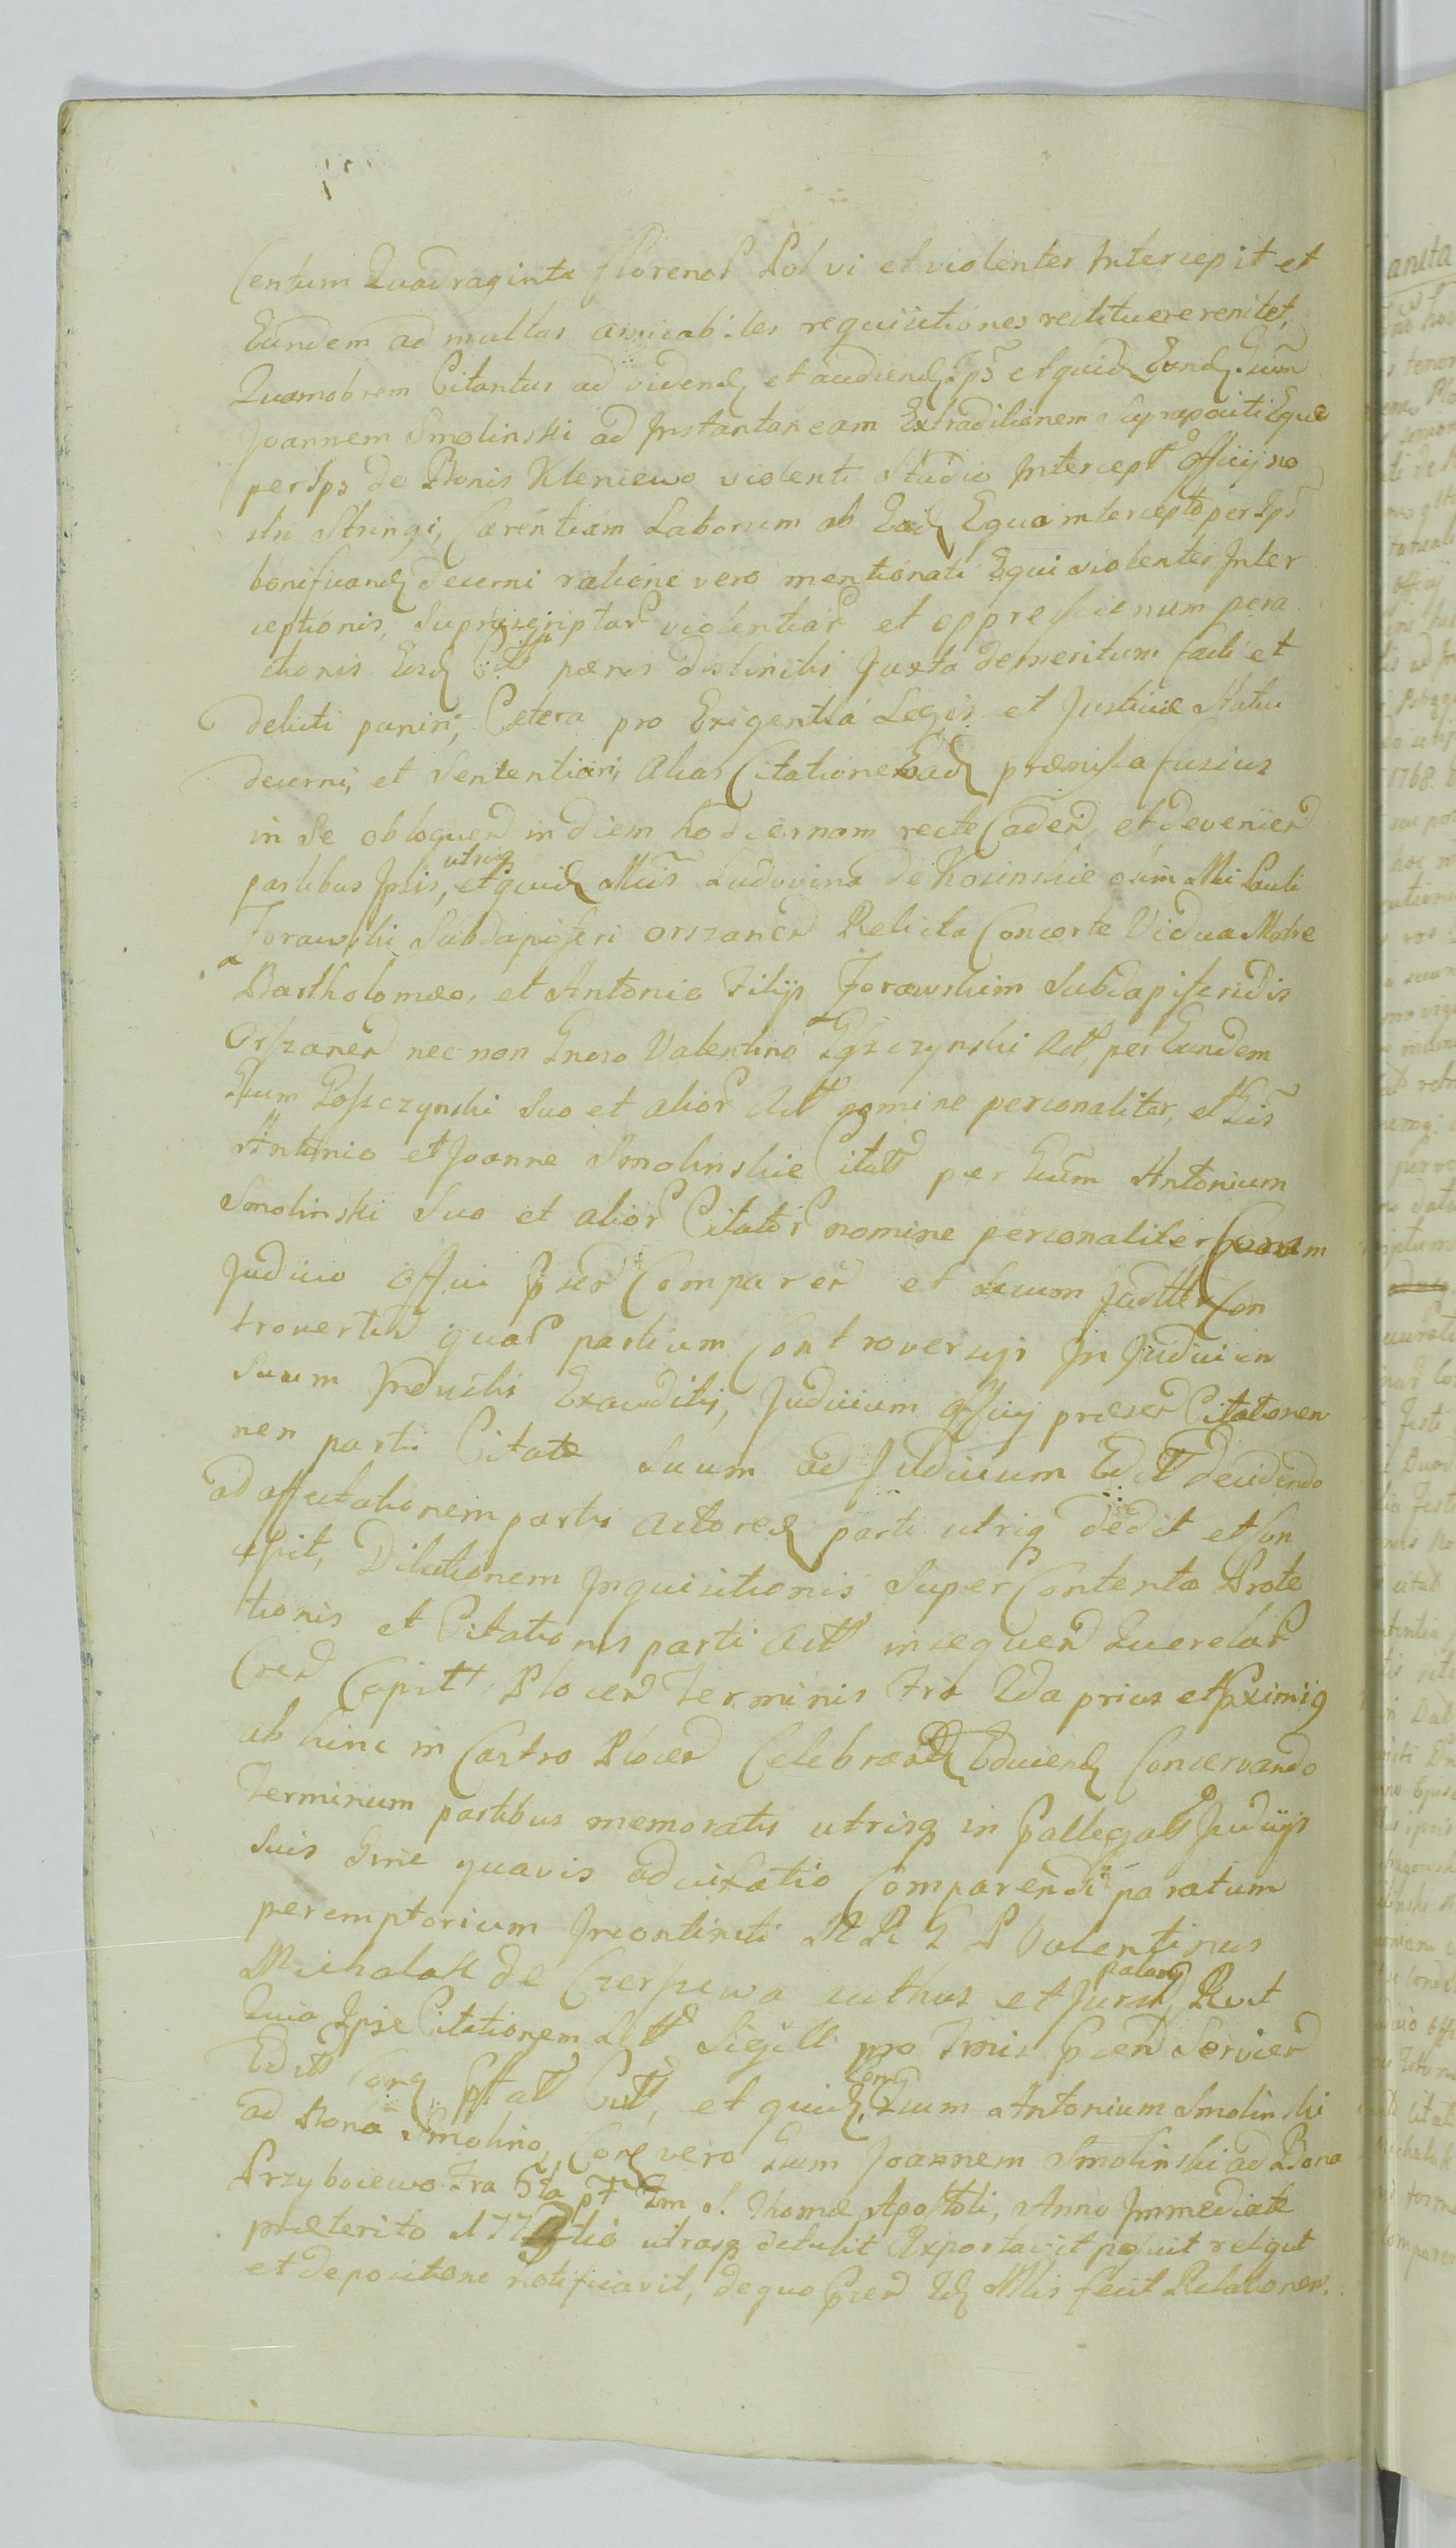 Centum Quadraginta florenos Pol vi et violenter Intercepit et
Eundem ad multas amicabiles requisitiones restituere renitet,
Quamobrem Citantur ad videnq et audienq Ips et quid Eundq
Joannem Smolinski ad Instantaneam Extraditionem Suprapositi Equi
per Ips de Bonis Kleniewo violenti Studio Intercept Officij no
stri Stringi, Carentiam Laborum ab Eodq Equo intercepto per Ips
bonificandq decerni ratione vero mentionati Equi violenter Inter
ceptionis, Supra scriptar violentiar et oppressionum pera
ctionis Eosdq Citt pænis distinctis Juxta demeritum facti et
delicti puniri, Cætera pro Exigentia Legis et Justitiæ Statui
decerni, et Sententiari, Alias Citatione Eadq præmissa fusius
in Se obloquen in diem hodiernam recte Caden, et devenien
partibus Ipsis, utrisq et quidq Ludovina de Kosinskie olim Mci Pauli
Zorawski Subdapiferi Orszanen Relicta Consorte Vidua Matre
a Bartholomæo, et Antonio Filijs Zorawskiem Subdapiferidis
Orszanen nec non Gnoso Valentino Act, per Eundem
Gsum Suo et alior Act nomine personaliter, et
Antonio et Joanne Smolinskie Citatt per Antonium
Smolinski Suo et alior Citator nomine personaliter Coram
Judicio Offici psen Comparen et Secum Con
troverten quar partium Controversijs In Judicium
Suum Inductis Exauditis, Judicium Officij præsen Citationem
nem parti Citatæ Suum ad Judicium Edit decidendo
ad affectationem partis Actoreq parti utriq dedit et Con
cessit, Dilationem Inquisitionis Super Contenta Prote
tionis et Citationis parti Act insequen Querelar
Coren Capitt Plocen Terminis Fra 2da prius et Pximijs
abhinc in Castro Plocen Celebrandq Educendq Conservando
Terminum partibus memoratis utrisq in Pallegatt Judicijs
Suis Sine quavis adcitatio Comparendi paratum
peremptorium Incontinenti Valentinus
Michalak de authus et palam Jurat, Recit
Quia Ipse Citationem Sigill pro Tmis Psen Servien
Edit Coreq Citt, et quidq Coreq Gsum Antonium Smolinski
ad Bona Smolino, Coreq vero Gsum Joannem Smolinski ad Bona
Przyboiewo Fra 5ta pt Fm S. Thomæ Apostoli, Anno Immediate
præterito utrasq detulit Exportavit posuit reliqt
et depositione notificavit, de quo Psen Idq Mlis fecit Relationem.